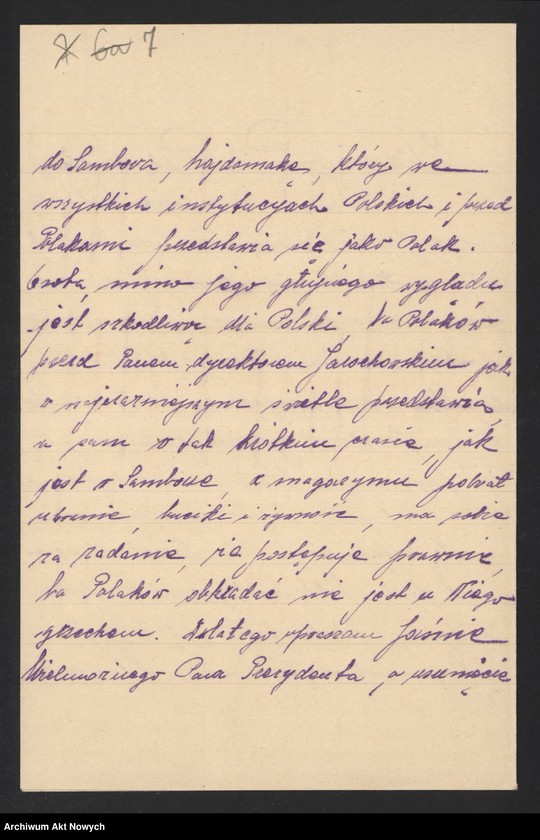 7
do Sambora, hajdamakę, który we
wszystkich instytucyjach Polskich i przed
Polakami przedstawia się jako Polak.
Osoba, mimo jego głupiego wyglądu
jest szkodliwa dla Polski, ba Polaków
przed Panem dyrektorem Jarochowskim jak
w najczarniejszym świetle przedstawia,
a sam w tak krótkim czasie, jak
jest w Samborze, z magazynu pobrał
ubranie, buciki i żywność, ma sobie
za zadanie, że postępuje prawnie,
ba Polaków okradać nie jest u Niego
grzechem. Dlatego upraszam Jaśnie
Wielmożnego Pana Prezydenta, o usunięcie
Archiwum Akt Nowych